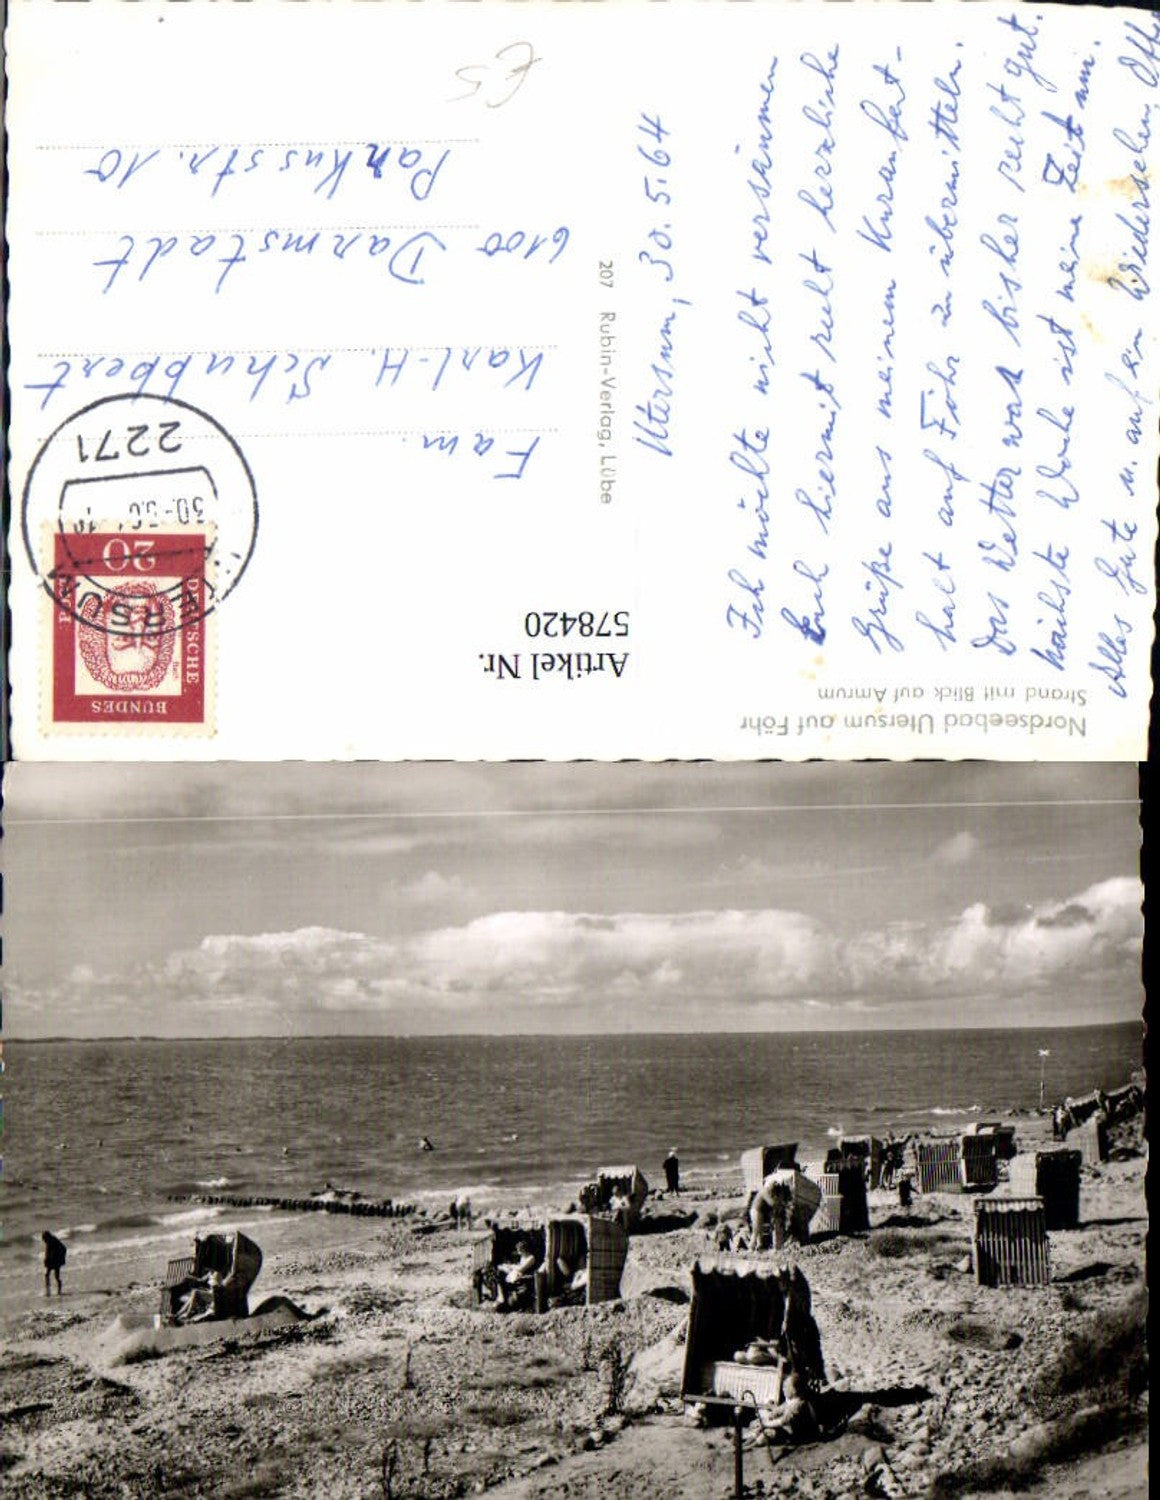 Nordseebad Utersum auf Föhr
Strand mit Blick auf Amrum
Utersum, 30.5.64
Ich möchte nicht versäumen
Euch hiermit recht herzliche
Grüße aus meinem Kuraufent-
halt auf Föhr zu übermitteln.
Das Wetter war bisher recht gut.
nächste Woche ist meine Zeit um.
Alles Gute u. auf ein Wiedersehen,
207 Rubin-Verlag, Lübe
Artikel Nr.
578420
DEUTSCHE
BUNDES
POST
20
Bach
2271
UTERSUM
30.-5.6
Fam.
Karl-H. Schubbert
6100 Darmstadt
Pankusstr. 10
€5